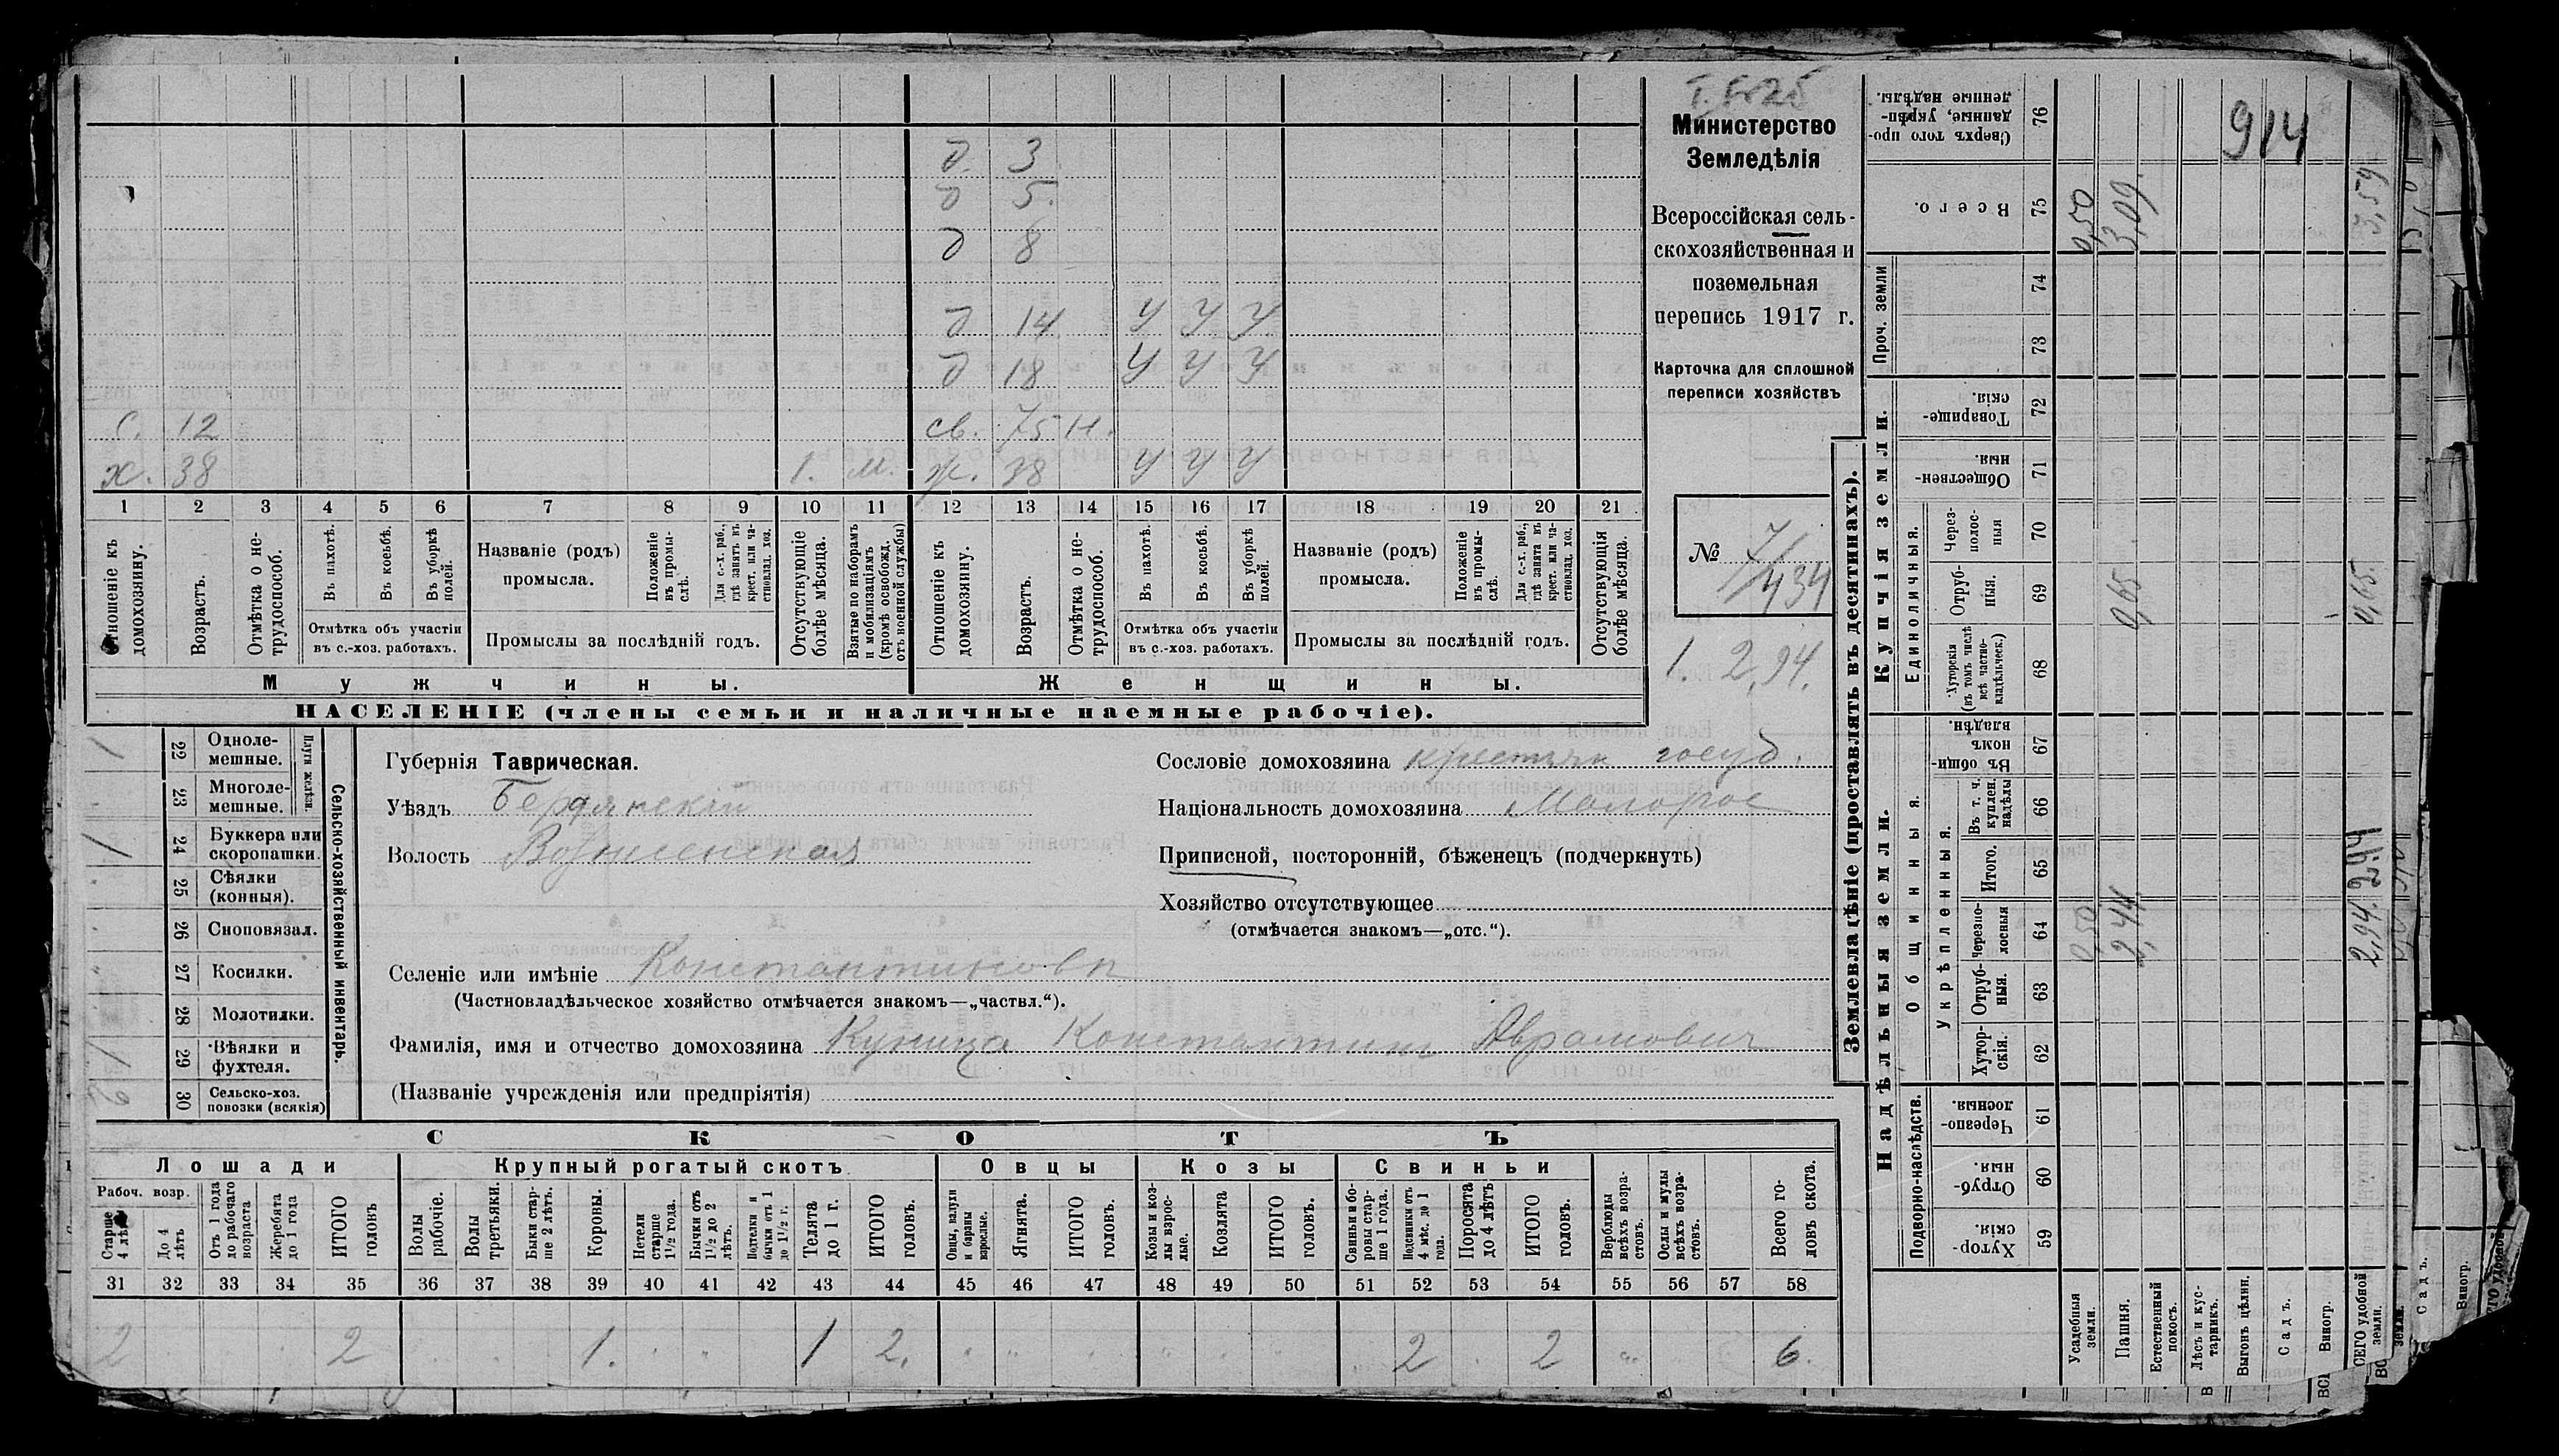 914
Министерство
Земледѣлія
Всероссійская сель-
скохозяйственная и
поземельная
перепись 1917 г.
Карточка для сплошной
переписи хозяйствъ
№ 7/434
1. 2,94.
д. 3
д 5.
д 8
д 14 у у у
д 18 у у у
с. 12 св. 75 н.
х. 38 1. м. ж. 38 у у у
1 2 3 4 5 6 7 8 9 10 11 12 13 14 15 16 17 18 19 20 21
Отношеніе къ домохозяину.
Возрастъ.
Отмѣтка о не-трудоспособ.
Въ пахотѣ.
Въ косьбѣ.
Въ уборкѣ полей.
Отмѣтка объ участіи
въ с.-хоз. работахъ.
Названіе (родъ)
промысла.
Положеніе въ промы-слѣ.
Для с.-х. раб., гдѣ занятъ въ крест. или ча-стновлад. хоз.
Промыслы за послѣдній годъ.
Отсутствующіе болѣе мѣсяца.
Взятые по наборамъ и мобилизаціямъ (кромѣ освобожд. отъ военной службы)
Отношеніе къ домохозяину.
Возрастъ.
Отмѣтка о не-трудоспособ.
Въ пахотѣ.
Въ косьбѣ.
Въ уборкѣ полей.
Отмѣтка объ участіи
въ с.-хоз. работахъ.
Названіе (родъ)
промысла.
Положеніе въ промы-слѣ.
Для с.-х. раб., гдѣ занята въ крест. или ча-стновлад. хоз.
Промыслы за послѣдній годъ.
Отсутствующія болѣе мѣсяца.
Мужчины. Женщины.
НАСЕЛЕНІЕ (члены семьи и наличные наемные рабочіе).
Сельско-хозяйственный инвентарь.
Плуги желѣзн.
1 22 Одноле-мешные.
23 Многоле-мешные.
1 24 Буккера или скоропашки.
25 Сѣялки (конныя).
26 Сноповязал.
27 Косилки.
28 Молотилки.
1 29 Вѣялки и фухтеля.
30 Сельско-хоз. повозки (всякія)
Губернія Таврическая.
Уѣздъ Бердянскій
Волость Вознесенская
Сословіе домохозяина крестьян госуд.
Національность домохозяина Малорос
Приписной, посторонній, бѣженецъ (подчеркнуть)
Хозяйство отсутствующее
(отмѣчается знакомъ—„отс.“).
Селеніе или имѣніе Константиновка
(Частновладѣльческое хозяйство отмѣчается знакомъ—„частвл.“).
Фамилія, имя и отчество домохозяина Куница Константин Аврамович
(Названіе учрежденія или предпріятія)
СКОТЪ
Лошади Крупный рогатый скотъ Овцы Козы Свиньи
Рабоч. возр.
Старше 4 лѣтъ
До 4 лѣтъ
Отъ 1 года до рабочаго возраста
Жеребята до 1 года
ИТОГО головъ
Волы рабочіе.
Волы третьяки.
Быки стар-ше 2 лѣтъ.
Коровы.
Нетели старше 1½ года.
Бычки отъ 1½ до 2 лѣтъ.
Подтелки и бычки отъ 1 до 1½ г.
Телята до 1 г.
ИТОГО головъ.
Овцы, валухи и бараны взрослые.
Ягнята.
ИТОГО головъ.
Козы и коз-лы взрос-лые.
Козлята
ИТОГО головъ.
Свиньи и бо-ровы стар-ше 1 года.
Подсвинки отъ 4 мѣс. до 1 года.
Поросята до 4 лѣтъ
ИТОГО головъ.
Верблюды всѣхъ возра-стовъ.
Ослы и мулы всѣхъ возра-стовъ.
Всего го-ловъ скота.
31 32 33 34 35 36 37 38 39 40 41 42 43 44 45 46 47 48 49 50 51 52 53 54 55 56 57 58
2 2 1. 1 2. 2 2 6.
Землевладѣніе (проставлять въ десятинахъ).
Купчія земли.
Надѣльныя земли.
Сверхъ того про-данные, укрѣп-ленные надѣлы. 76
Всего. 75 0,50 3,09. 3,59
Проч. земли 74 73
Товарище-скія. 72
Обществен-ныя. 71
Единоличныя.
Через-полос-ныя 70
Отруб-ныя. 69 0,65 0,65.
Хуторскія (въ томъ числѣ всѣ частно-владѣльческ.) 68
Общинныя.
Въ общи-номъ владѣн. 67
Укрѣпленныя.
Въ т. ч. куплен. надѣлы 66
Итого. 65
Черезпо-лосныя 64 0,50 2,44. 2,94.
Отруб-ныя. 63
Хутор-скія. 62
Подворно-наслѣдств.
Черезпо-лосныя. 61
Отруб-ныя. 60
Хутор-скія. 59
Усадебныя земли.
Пашня.
Естественный покосъ.
Лѣсъ и кус-тарникъ.
Выгонъ цѣлин.
Садъ.
Виногр.
ВСЕГО удобной земли.
Садъ.
Виногр.